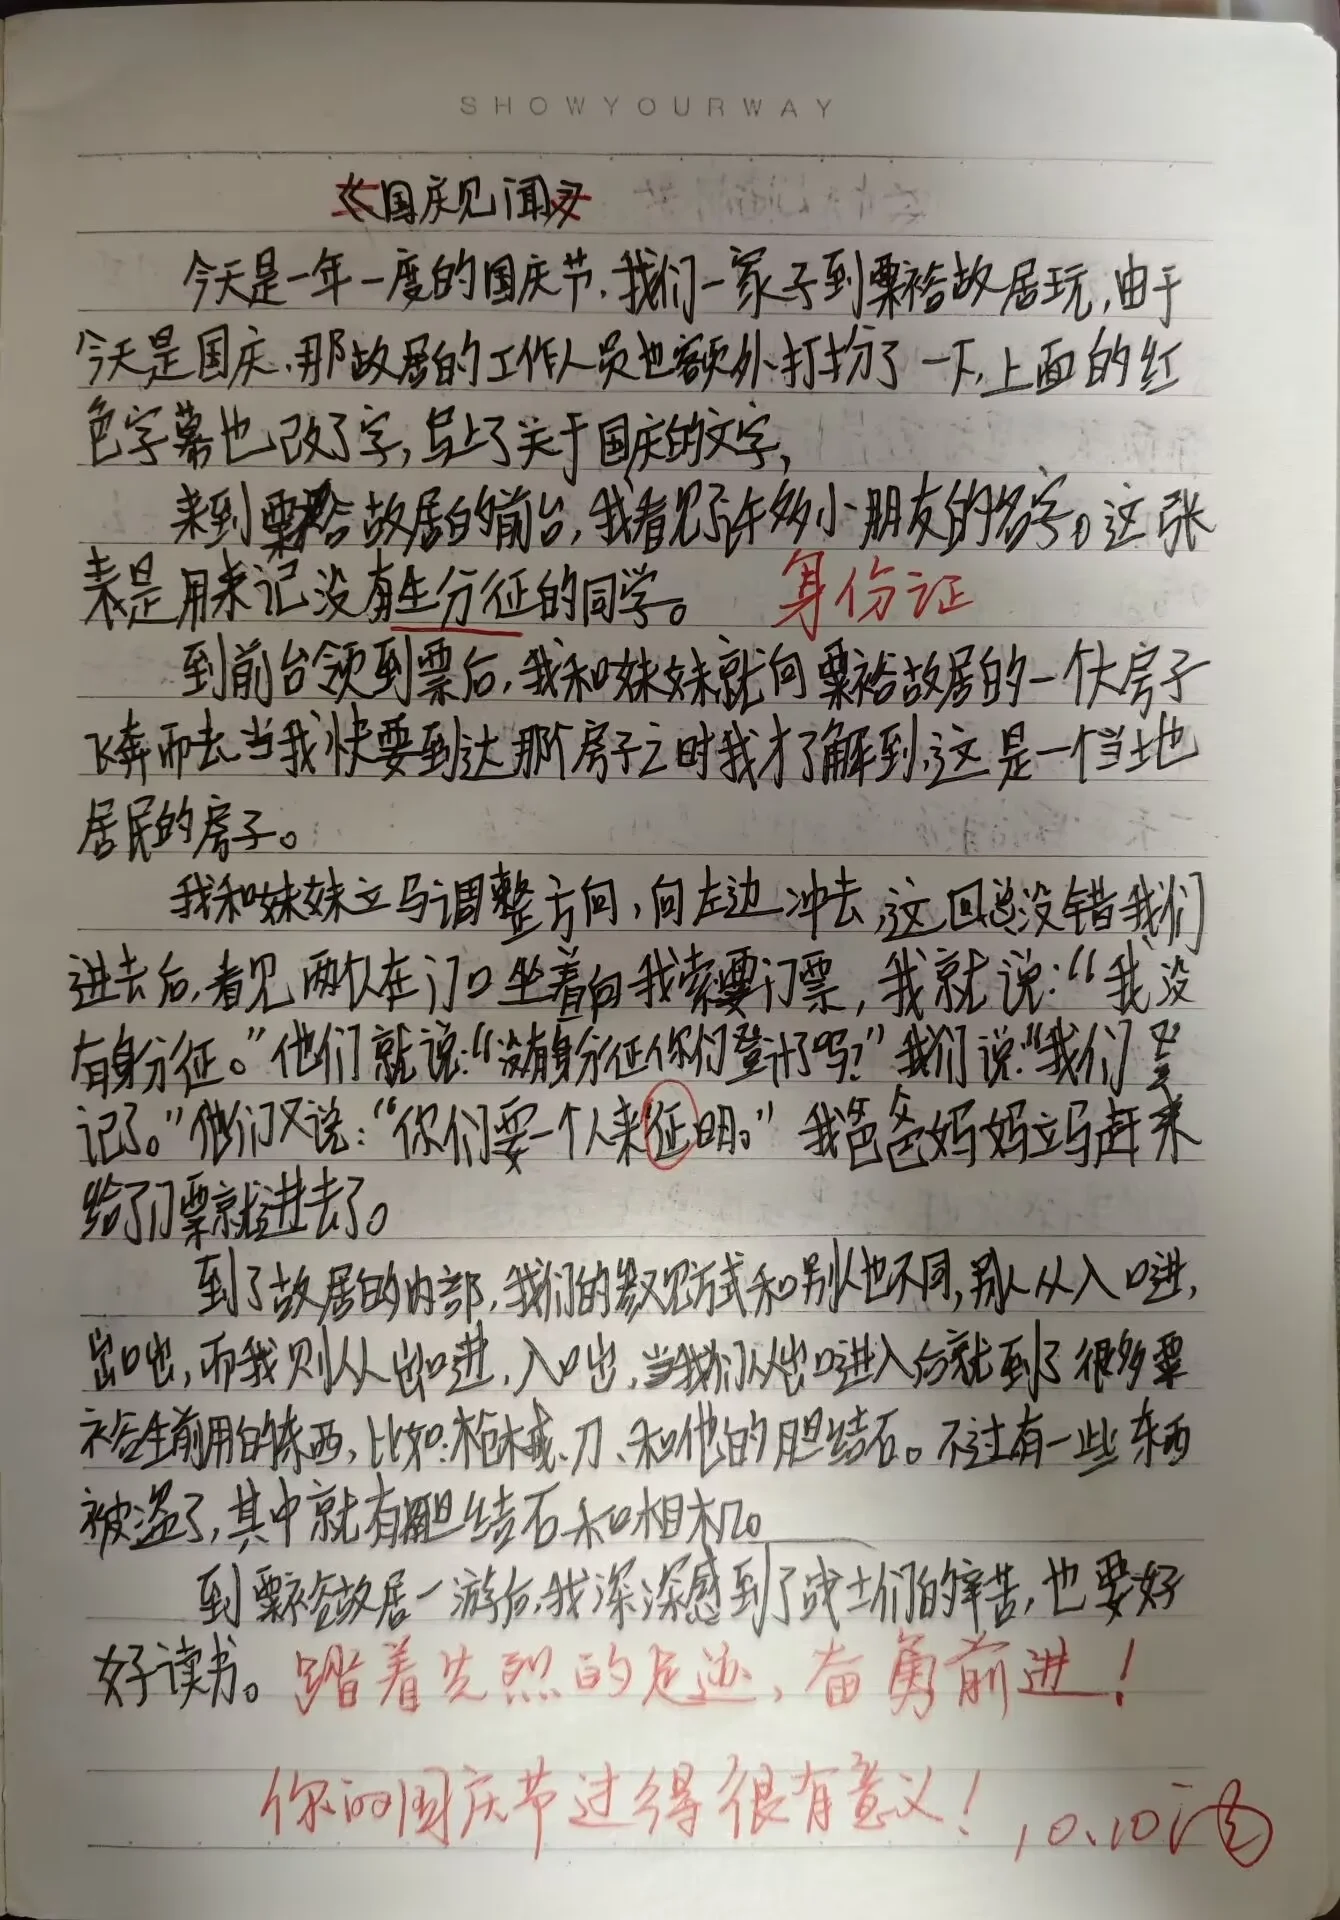 SHOWYOURWAY
《国庆见闻》
今天是一年一度的国庆节,我们一家子到粟裕故居玩,由于
今天是国庆,那故居的工作人员也额外打扮了一下,上面的红
色字幕也改了字,写上了关于国庆的文字,
来到粟裕故居的前台,我看见了许多小朋友的名字。这张
表是用来记没有生分征的同学。 身份证
到前台领到票后,我和妹妹就向粟裕故居的一个大房子
飞奔而去,当我快要到达那个房子之时我才了解到,这是一个当地
居民的房子。
我和妹妹立马调整方向,向左边冲去,这回总没错我们
进去后,看见两人在门口坐着向我索要门票,我就说:“我没
有身分征。”他们就说:“没有身分征你们登计了吗?”我们说“我们登
记了。”他们又说:“你们要一个人来征明。”我爸爸妈妈立马赶来
给了门票就进去了。
到了故居的内部,我们的参观方式和别人也不同,别人从入口进,
出口出,而我则从出口进,入口出,当我们从出口进入后就到了很多粟
裕生前用的东西,比如:枪械、刀、和他的胆结石。不过有一些东西
被盗了,其中就有胆结石和相机。
到粟裕故居一游后,我深深感到了战士们的辛苦,也要好
好读书。踏着先烈的足迹,奋勇前进!
你的国庆节过得很有意义! 10.10